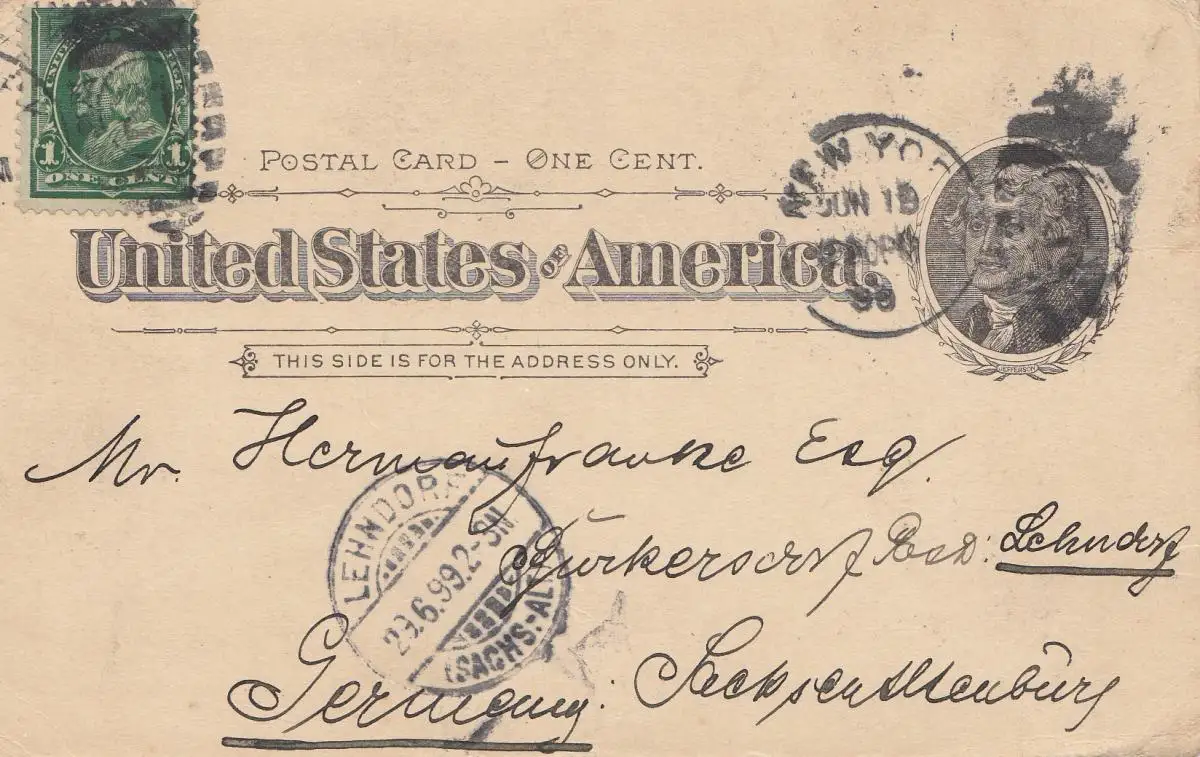 UNITED
1 1
ONE CENT
POSTAL CARD – ONE CENT.
NEW YO
JUN 19
99
United States OF America.
THIS SIDE IS FOR THE ADDRESS ONLY.
JEFFERSON
Mr. Herman Franke Esq.
Post: Lehndorf
LEHNDORF
29.6.99.2-3N.
(SACHS.-ALT
Germany: Sachsen Altenbürg